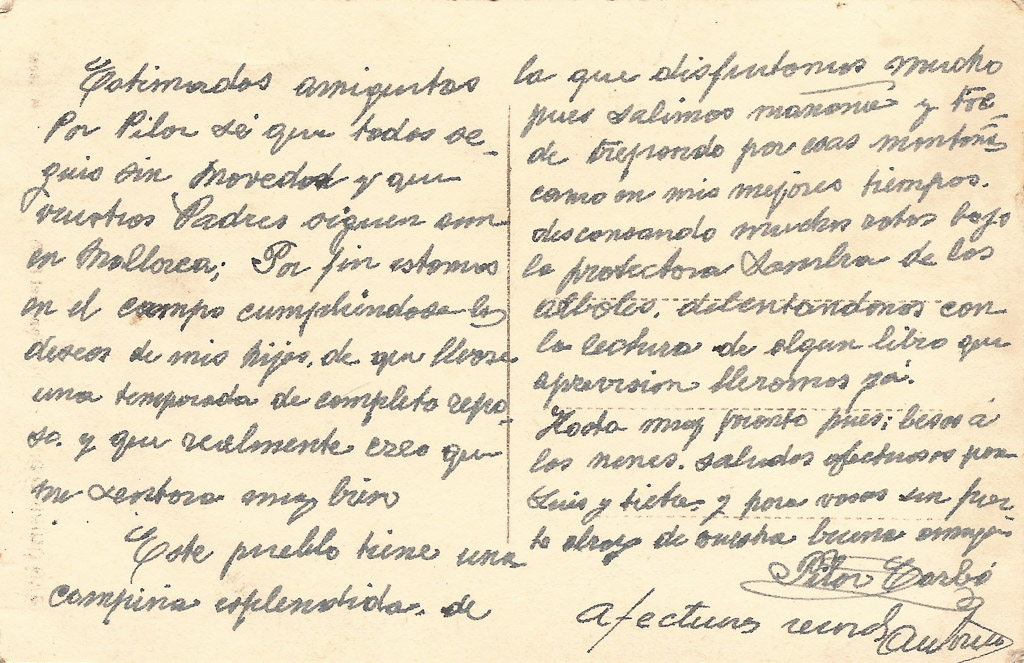 Estimados amiguitos
Por Pilar sé que todos se-
guis sin novedad y que
vuestros Padres siguen aun
en Mallorca; Por fin estamos
en el campo cumpliendose los
deseos de mis hijos, de que lleve
una temporada de completo repo-
so. y que realmente creo que
me sentara muy bien
Este pueblo tiene una
campiña esplendida. de
la que disfrutamos mucho
pues salimos mañana y tar
de trepando por esas montañas
como en mis mejores tiempos.
descansando muchos ratos bajo
la protectora sombra de los
arboles. deleitandonos con
la lectura de algun libro que
a prevision llevamos ya.
Hasta muy pronto pues; besos á
los nenes. saludos afectuosos para
Luis y tieta. y para vosos un fuer-
te abrazo de vuestra buena amiga
Pilar Carbó
Afectuosos records